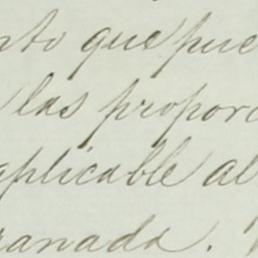 nto que pue
las propor
aplicable al
ranada.